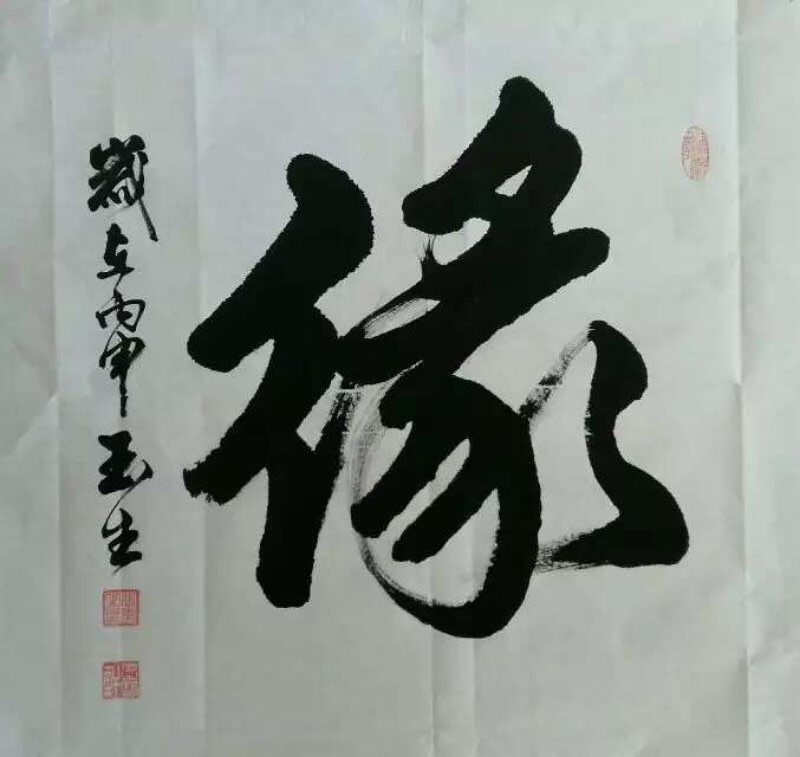 缘
歲在丙申玉生